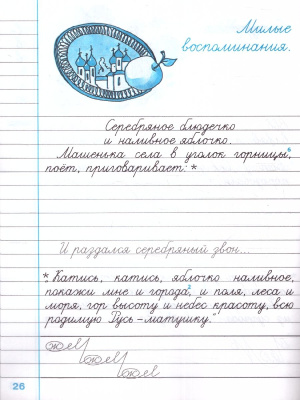 Милые
воспоминания.
Серебряное блюдечко
и наливное яблочко.
Машенька села в уголок горницы,
поёт, приговаривает: *
И раздался серебряный звон...
* „Катись, катись, яблочко наливное,
покажи мне и города, и поля, леса и
моря, гор высоту и небес красоту, всю
родимую Русь-матушку."
26